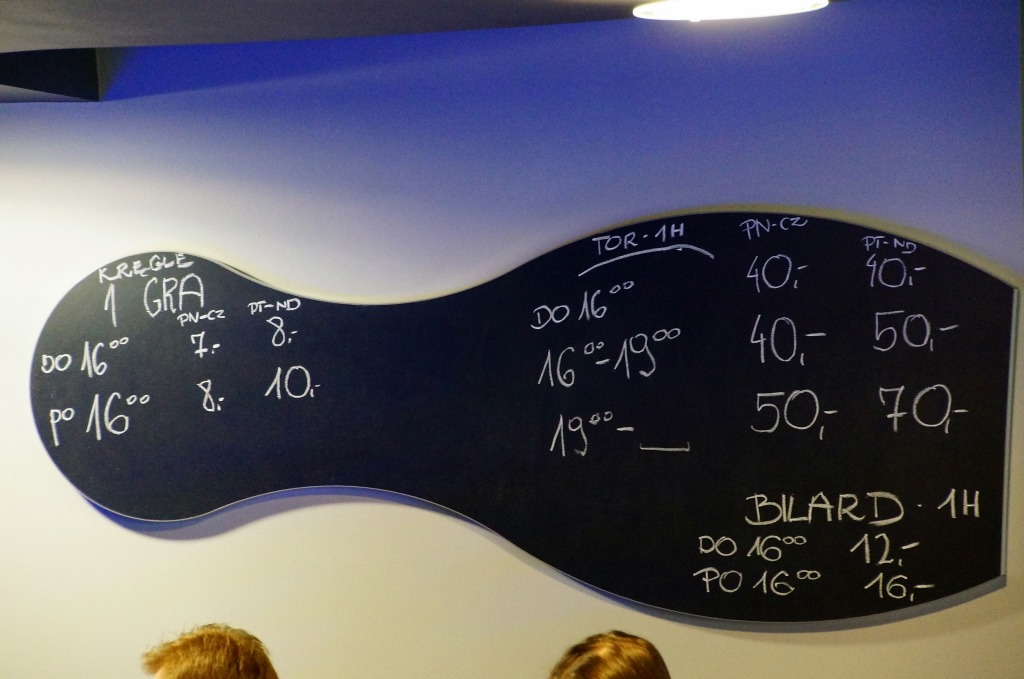 KRĘGLE
1 GRA
PN-CZ PT-ND
DO 16⁰⁰ 7.- 8,-
PO 16⁰⁰ 8.- 10,-
TOR - 1H PN-CZ PT-ND
DO 16⁰⁰ 40,- 40,-
16⁰⁰-19⁰⁰ 40,- 50,-
19⁰⁰-__ 50,- 70,-
BILARD - 1H
DO 16⁰⁰ 12,-
PO 16⁰⁰ 16,-